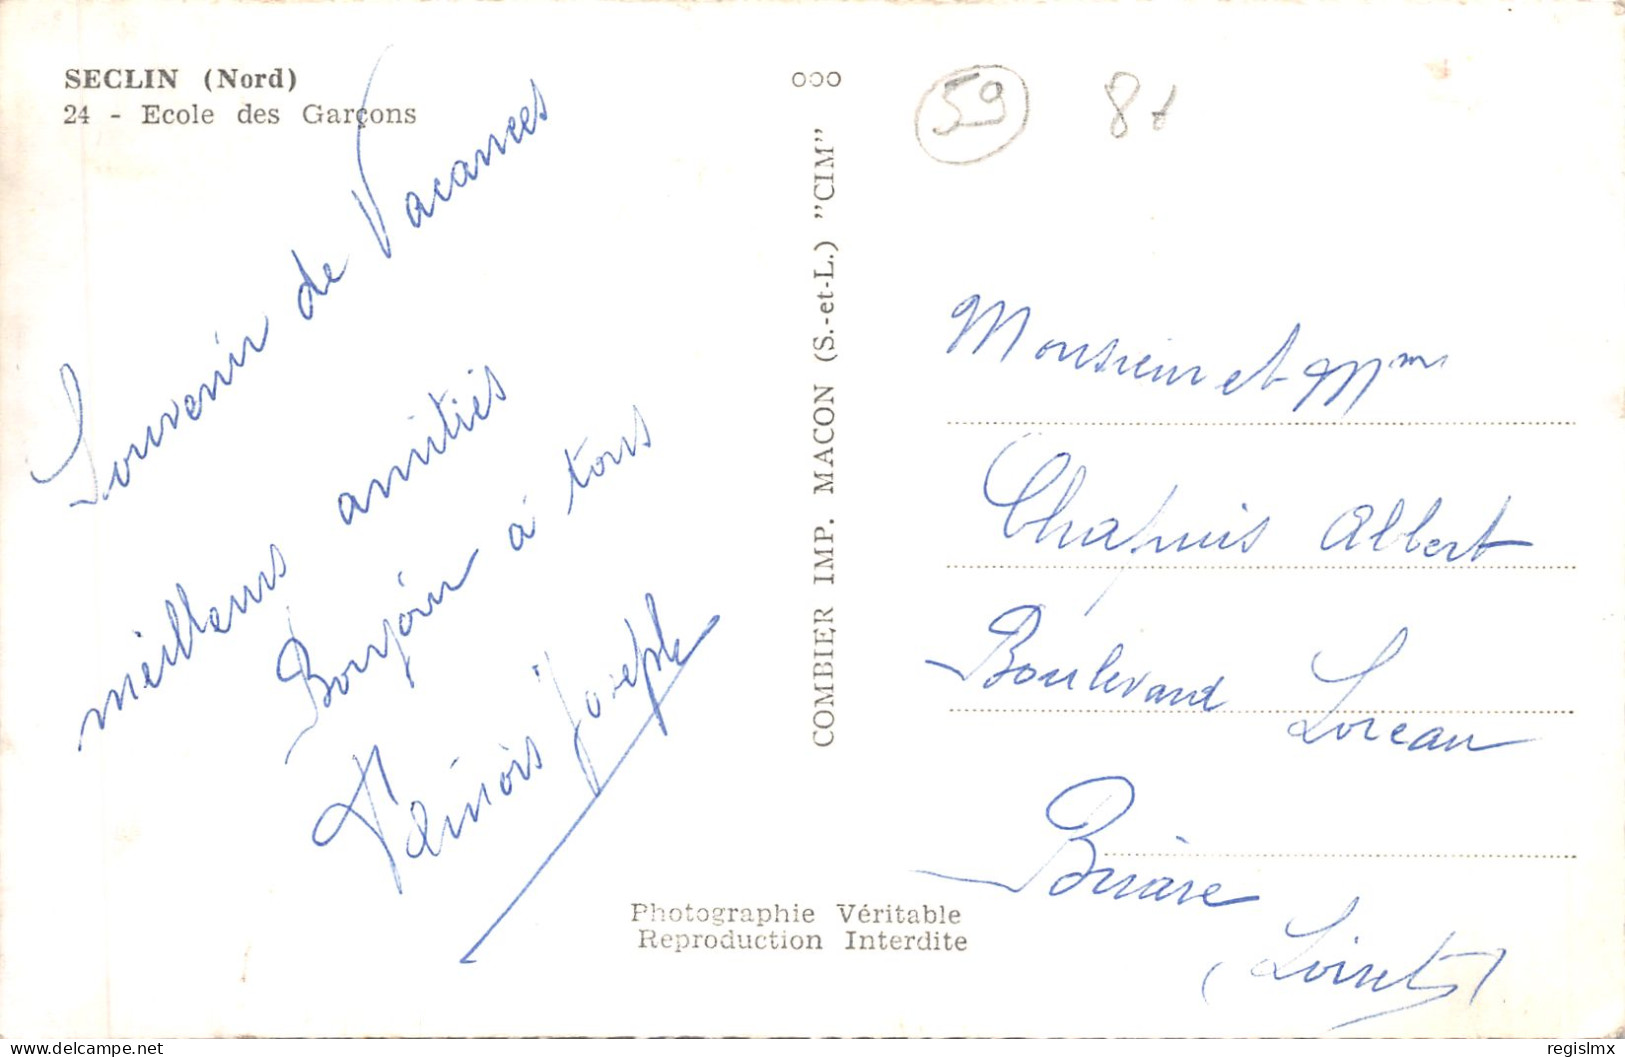 SECLIN (Nord)
24 - Ecole des Garçons
Souvenir de Vacances
meilleurs amitiés
Bonjour à tous
Joseph
COMBIER IMP. MACON (S.-et-L.) "CIM"
59
8t
Monsieur et Mme
Chapuis Albert
Boulevard Loreau
Briare
(Loiret)
Photographie Véritable
Reproduction Interdite
delcampe.net
regislmx